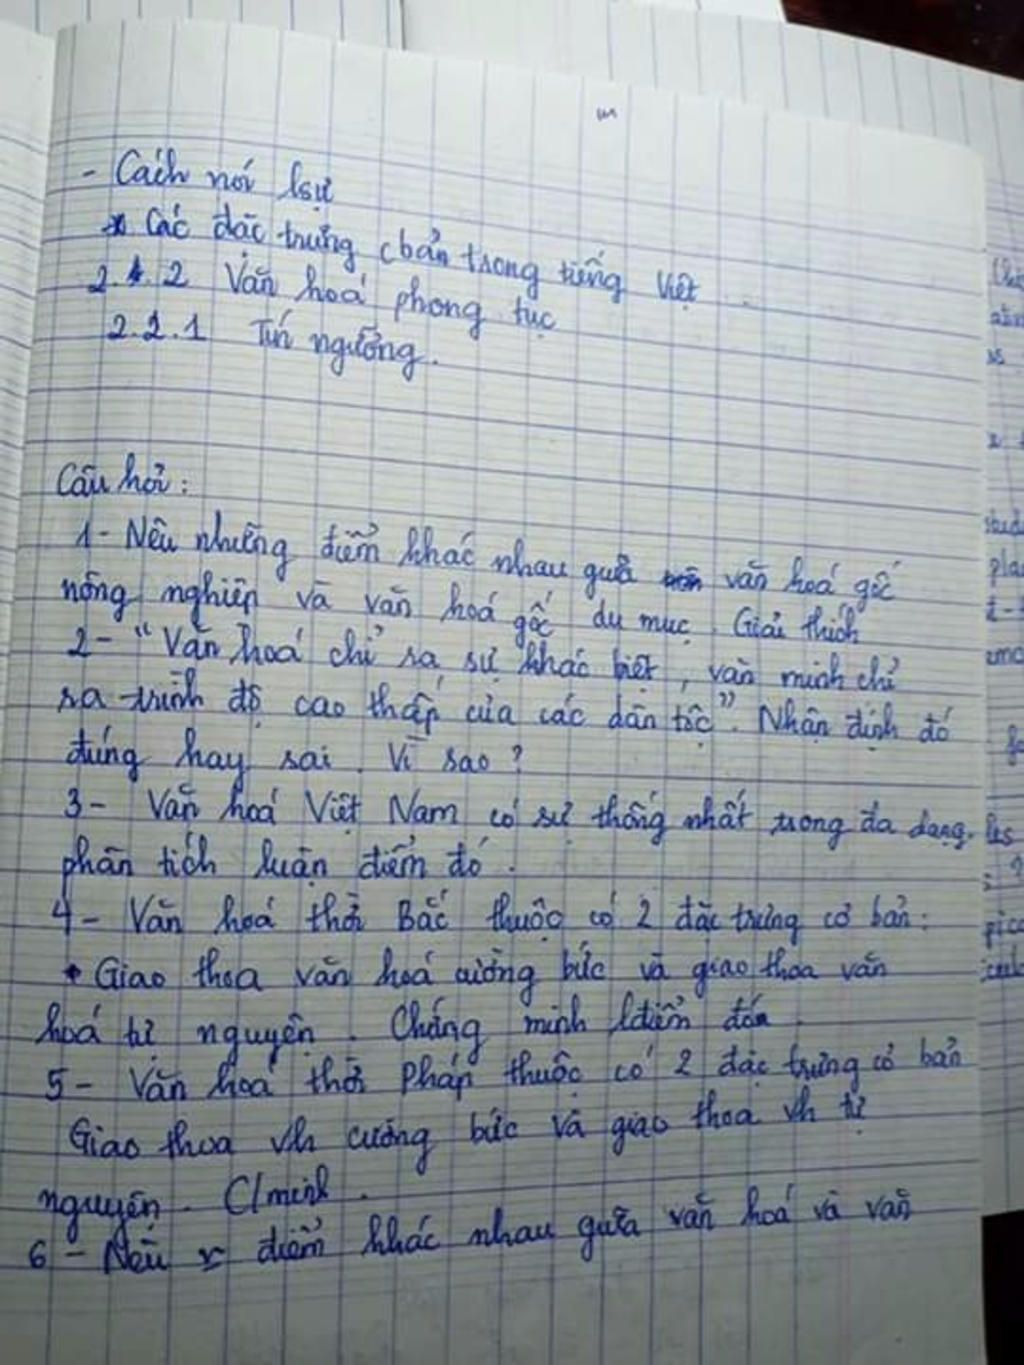 - Cách nói lsự
* Các đặc trưng cbản trong tiếng Việt
2.2 Văn hoá phong tục
2.2.1 Tín ngưỡng.
Câu hỏi:
1- Nêu những điểm khác nhau giữa văn hoá gốc
nông nghiệp và văn hoá gốc du mục. Giải thích
2- "Văn hoá chỉ ra sự khác biệt, văn minh chỉ
ra trình độ cao thấp của các dân tộc". Nhận định đó
đúng hay sai. Vì sao?
3- Văn hoá Việt Nam có sự thống nhất trong đa dạng.
phân tích luận điểm đó.
4- Văn hoá thời Bắc thuộc có 2 đặc trưng cơ bản:
Giao thoa văn hoá cưỡng bức và giao thoa văn
hoá tự nguyện. Chứng minh lđiểm đó
5- Văn hoá thời Pháp thuộc có 2 đặc trưng cơ bản
Giao thoa vh cưỡng bức và giao thoa vh tự
nguyện. C/minh.
6- Nêu điểm khác nhau giữa văn hoá và văn